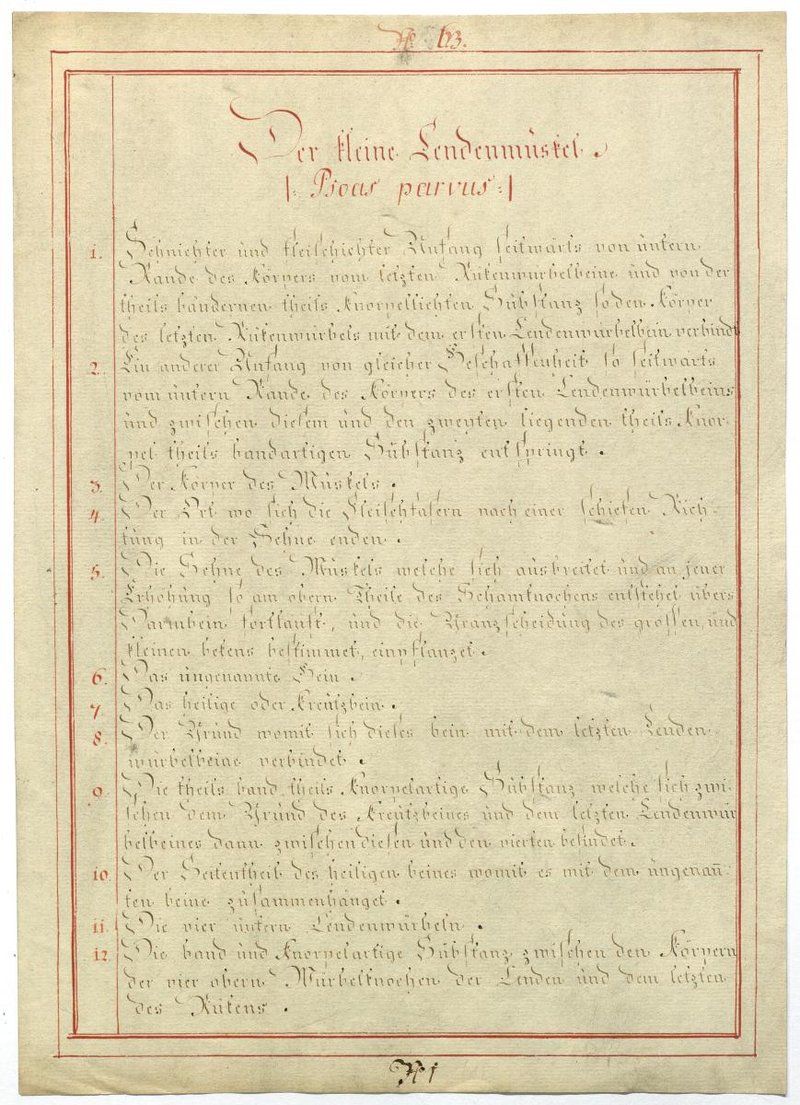 No 63.
Der kleine Lendenmuskel.
|: Psoas parvus :|
1. Sehnichter und fleischichter Anfang seitwärts von untern
Rande des Körpers vom letzten Rükenwürbelbeine und von der
theils bändernen theils Knorpellichten Substanz so den Körper
des letzten Rükenwürbels mit dem ersten Lendenwürbelbein verbindt
2. Ein anderer Anfang von gleicher Beschaffenheit so seitwärts
vom untern Rande des Körpers des ersten Lendenwürbelbeins
und zwischen diesem und den zweyten liegenden theils Knor-
pel theils bandartigen Substanz entspringt.
3. Der Körper des Muskels.
4. Der Ort wo sich die Fleischfasern nach einer schiefen Rich-
tung in der Sehne enden.
5. Die Sehne des Muskels welche sich ausbreitet und an jener
Erhöhung so am obern Theile des Schamknochens entstehet übers
Darmbein fortlauft, und die Gränzscheidung des grossen, und
kleinen bekens bestimmet, einpflanzet.
6. Das ungenannte Bein.
7. Das heilige oder Kreutzbein.
8. Der Grund womit sich dieses bein mit dem letzten Lenden
würbelbeine verbindet.
9. Die theils band theils Knorpelartige Substanz welche sich zwi-
schen dem Grund des Kreutzbeines und dem letzten Lendenwür
belbeines dann zwischen diesen und den vierten befindet.
10. Der Seitentheil des heiligen beines womit es mit dem ungenan̄-
ten beine zusammenhänget.
11. Die vier untern Lendenwürbeln.
12. Die band und Knorpelartige Substanz zwischen den Körpern
der vier obern Würbelknochen der Lenden und dem letzten
des Rükens.
No 1